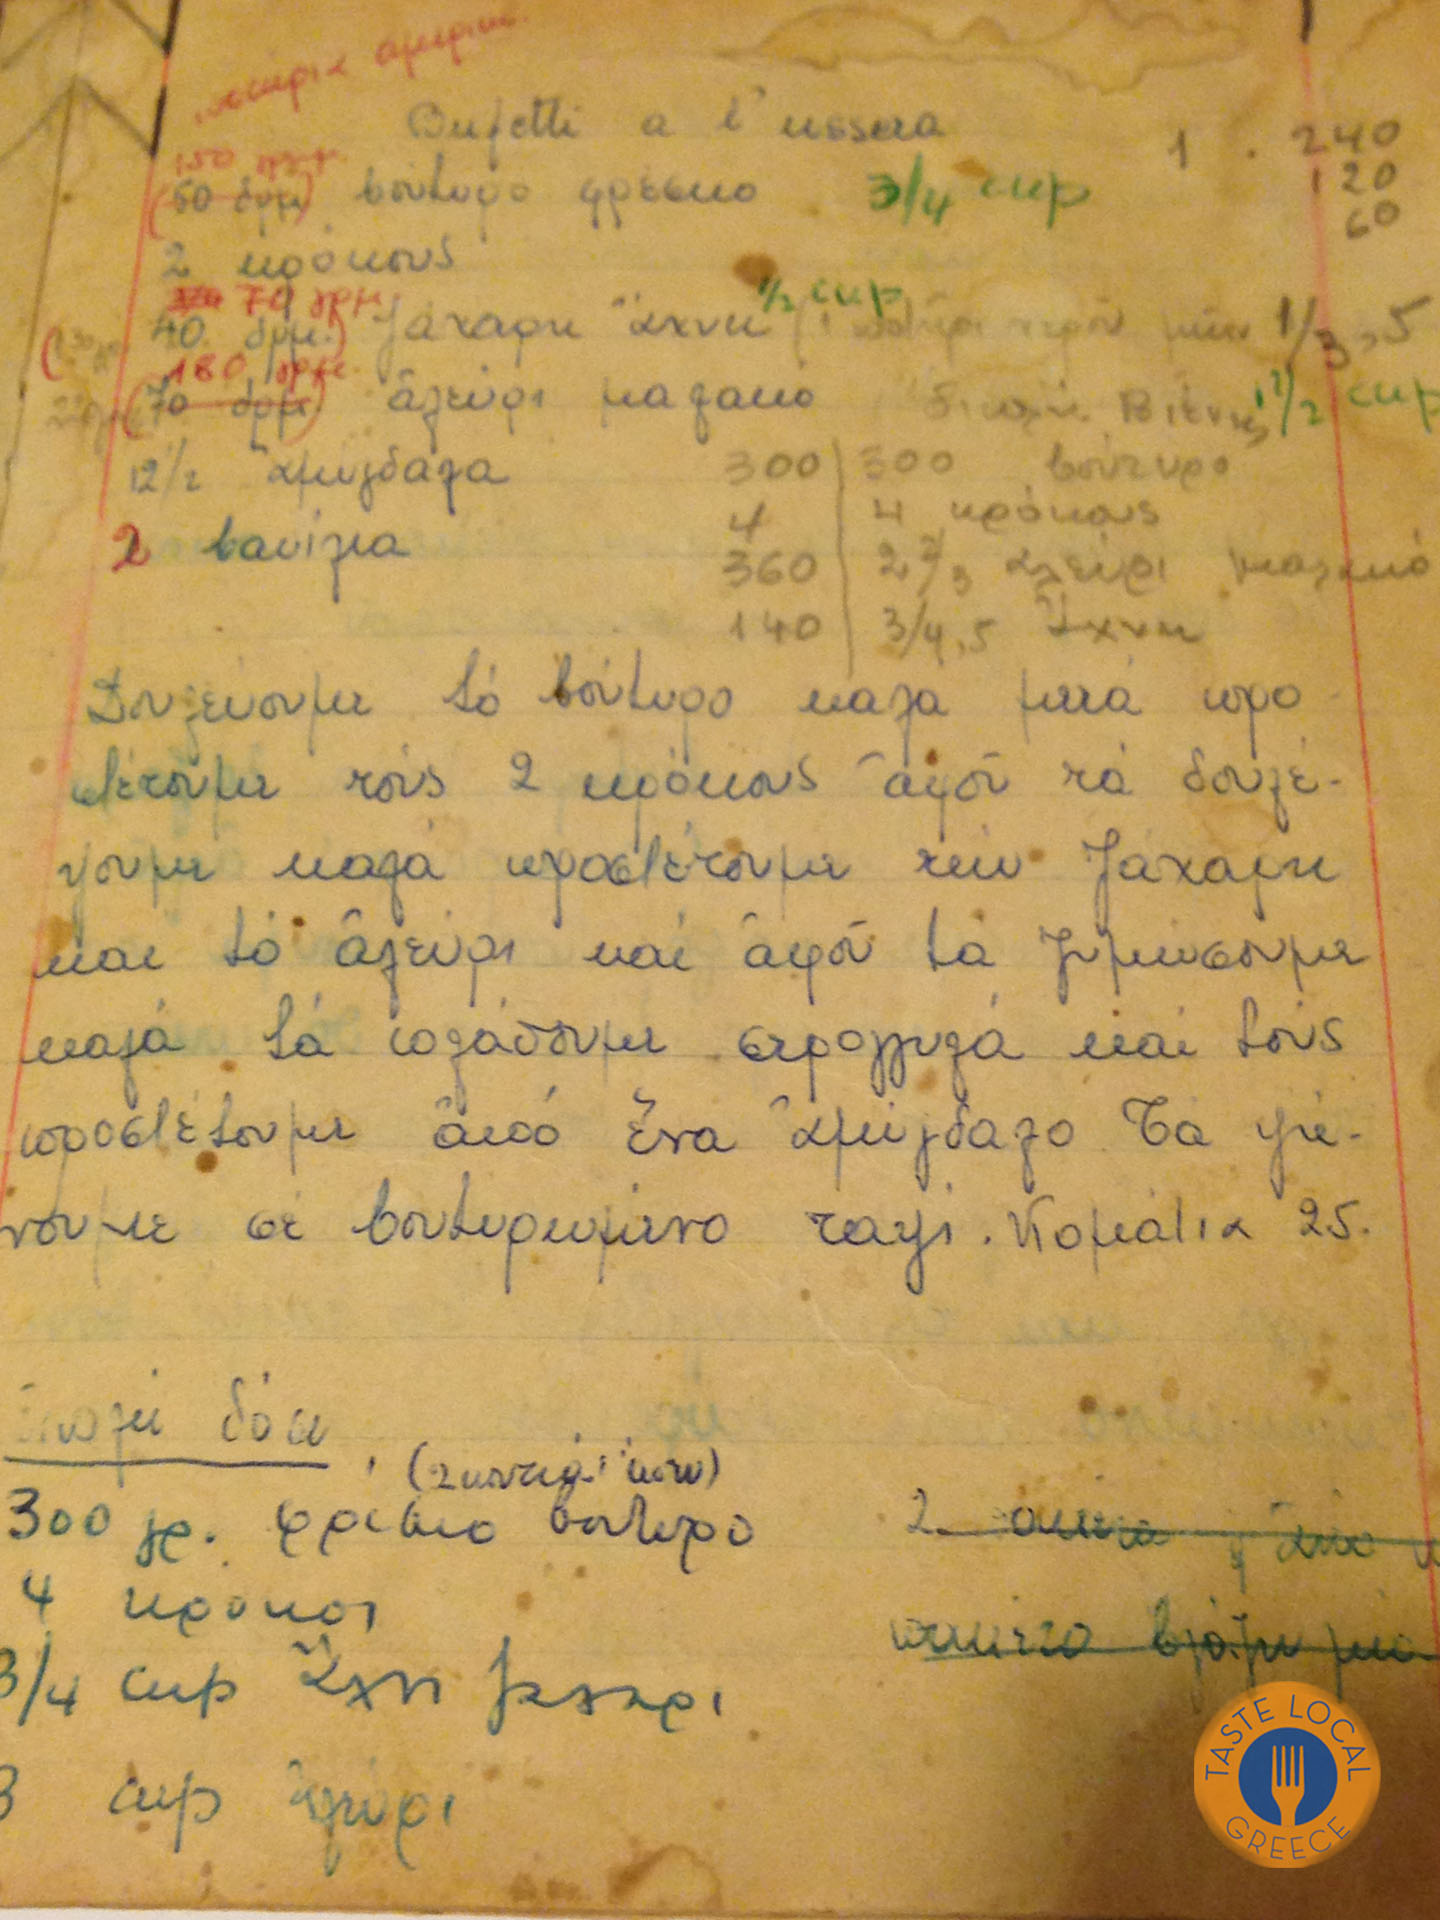 a l'ussera
1 . 240
120
60
150 γρμ.
(50 δρμ) βούτυρο φρέσκο 3/4 cup
2 κρόκους
70 γρμ.
40 δρμ.) ζάχαρη ἄχνη 1/2 cup 1/3,5
180 γρμ.
(70 δρμ) ἀλεύρι μαλακό 1 1/2 cup
12 1/2 ἀμύγδαλα
2 βανίλια
300 | 300 βούτυρο
4 | 4 κρόκους
360 | 2 2/3 ἀλεύρι μαλακό
140 | 3/4,5 ἄχνη
Δουλεύουμε τό βούτυρο καλά μετά προ-
σθέτουμε τούς 2 κρόκους ἀφοῦ τά δουλέ-
ψουμε καλά προσθέτουμε τήν ζάχαρη
καί τό ἀλεύρι καί ἀφοῦ τά ζυμώσουμε
καλά τά πλάθουμε στρογγυλά καί τούς
προσθέτουμε ἀπό ἕνα ἀμύγδαλο Τά ψή-
νουμε σέ βουτυρωμένο ταψί. Κομάτια 25.
διπλή δόση
300 γρ. φρέσκο βούτυρο
4 κρόκοι
3/4 cup ἄχνη ζάχαρι
3 cup ἀλεύρι
TASTE LOCAL
GREECE